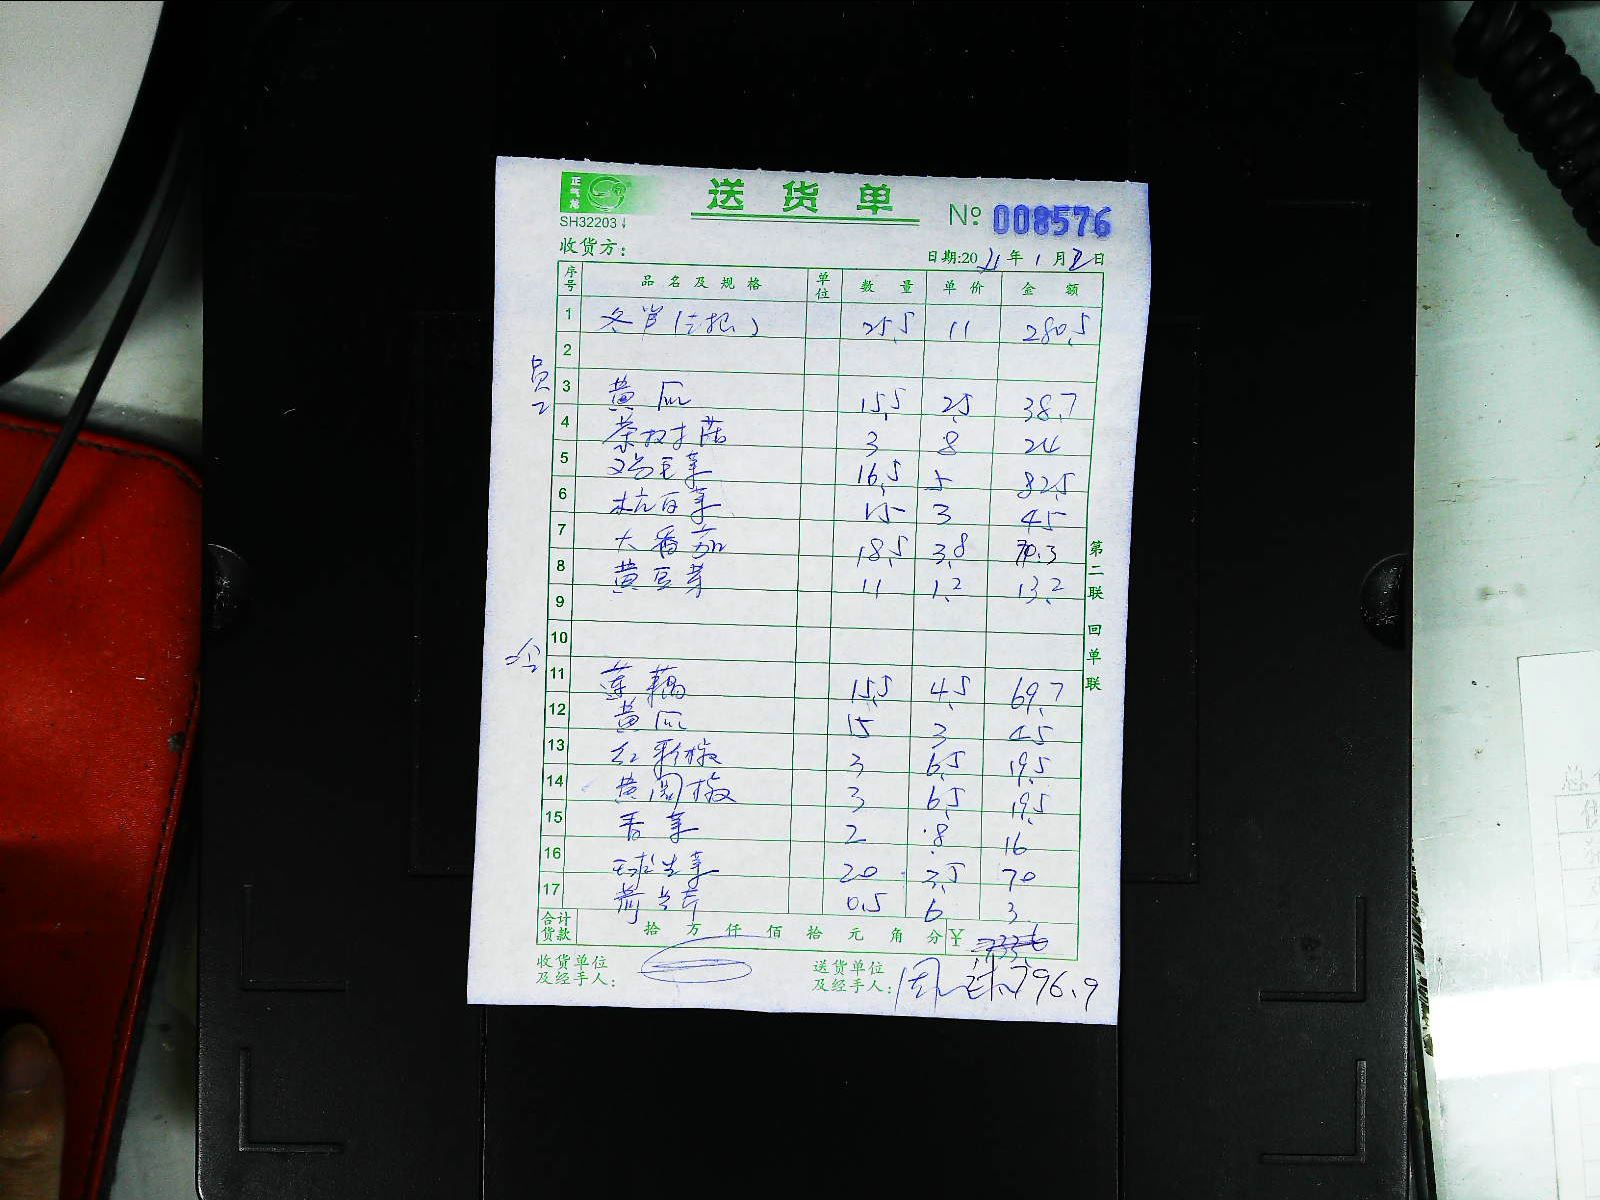 正气龙
送货单
SH32203
No: 008576
收货方:
日期:2021年1月2日
序号 品名及规格 单位 数量 单价 金额
1 冬笋 25.5 11 280.5
2
员工
3 黄瓜 15.5 2.5 38.7
4 茶树菇 3 8 24
5 鸡毛菜 16.5 5 82.5
6 杭白菜 15 3 45
7 大番茄 18.5 3.8 70.3
8 黄豆芽 11 1.2 13.2
9
10
冷
11 莲藕 15.5 4.5 69.7
12 黄瓜 15 3 45
13 红彩椒 3 6.5 19.5
14 黄圆椒 3 6.5 19.5
15 香菜 2 8 16
16 球生菜 20 3.5 70
17 荷兰芹 0.5 6 3
合计货款 拾 万 仟 佰 拾 元 角 分 ¥
收货单位及经手人:
送货单位及经手人: 周 796.9
第二联 回单联